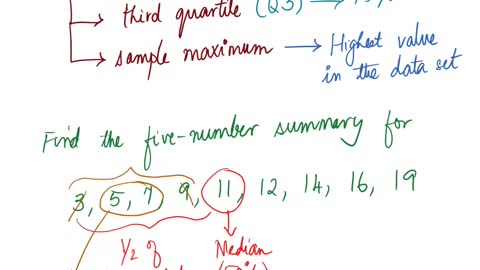 third quartile (Q3) →
sample maximum → Highest value
in the data set
Find the five-number summary for
3, 5, 7, 9, 11, 12, 14, 16, 19
1/2 of Median